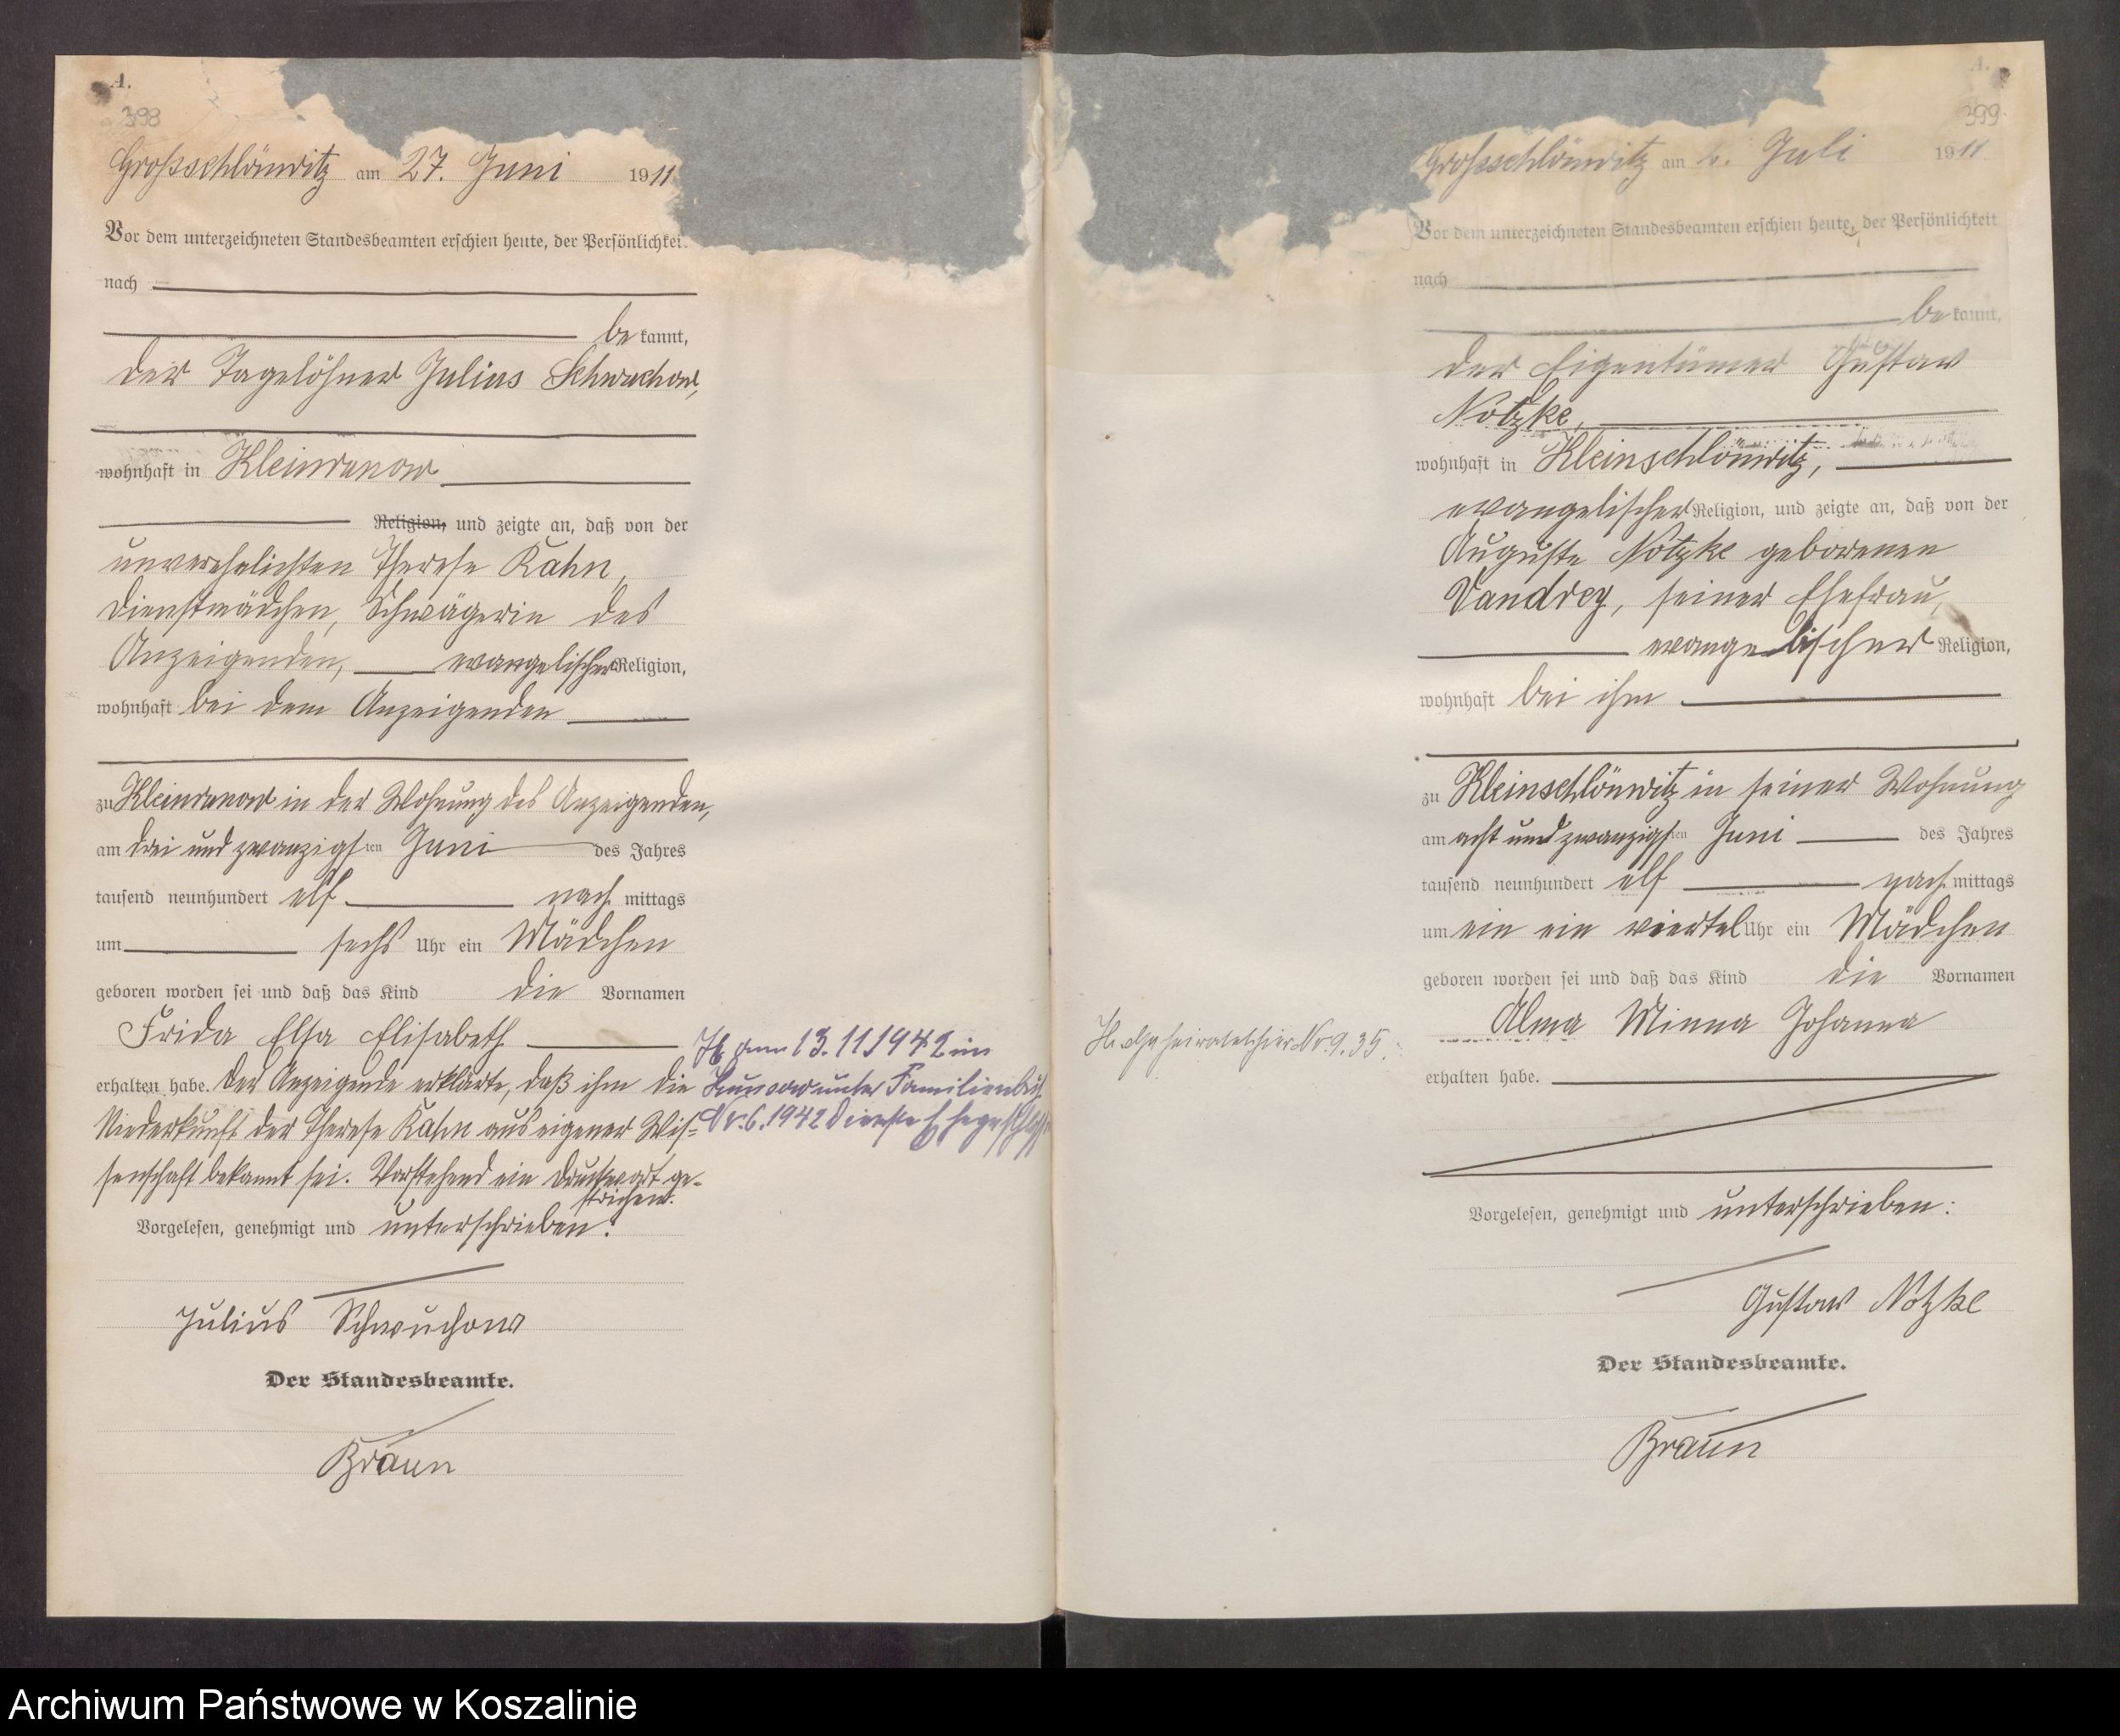 A.
398
Grossschlönwitz am 27. Juni 1911
Vor dem unterzeichneten Standesbeamten erschien heute, der Persönlichkei
nach
be kannt,
der Tagelöhner Julius Schwuchow,
wohnhaft in Kleinrunow
Religion, und zeigte an, daß von der
unverehelichten Therese Kahn,
Dienstmädchen, Schwägerin des
Anzeigenden, evangelischer Religion,
wohnhaft bei dem Anzeigenden
zu Kleinrunow in der Wohnung des Anzeigenden,
am drei und zwanzigsten Juni des Jahres
tausend neunhundert elf nach mittags
um sechs Uhr ein Mädchen
geboren worden sei und daß das Kind die Vornamen
Frida Elsa Elisabeth
erhalten habe. Der Anzeigende erklärte, daß ihm die
Niederkunft der Therese Kahn aus eigener Wis-
senschaft bekannt sei. Vorstehend ein Druckwort ge-
strichen.
Vorgelesen, genehmigt und unterschrieben.
Julius Schwuchow
Der Standesbeamte.
Braun
am 13.11.1942 in
unter Familienbuch
Nr. 6.1942 die erste Ehe geschlossen
A.
399
Grossschlönwitz am Juli 1911
Vor dem unterzeichneten Standesbeamten erschien heute, der Persönlichkeit
nach
be kannt,
der Eigentümer Gustav
Notzke,
wohnhaft in Kleinschlönwitz,
evangelischer Religion, und zeigte an, daß von der
Auguste Notzke geborenen
Vandrey, seiner Ehefrau,
evangelischer Religion,
wohnhaft bei ihm
zu Kleinschlönwitz in seiner Wohnung
am acht und zwanzigsten Juni des Jahres
tausend neunhundert elf nach mittags
um ein ein viertel Uhr ein Mädchen
geboren worden sei und daß das Kind die Vornamen
Alma Minna Johanna
erhalten habe.
Vorgelesen, genehmigt und unterschrieben:
Gustav Notzke
Der Standesbeamte.
Braun
hier Nr. 9.35.
Archiwum Państwowe w Koszalinie